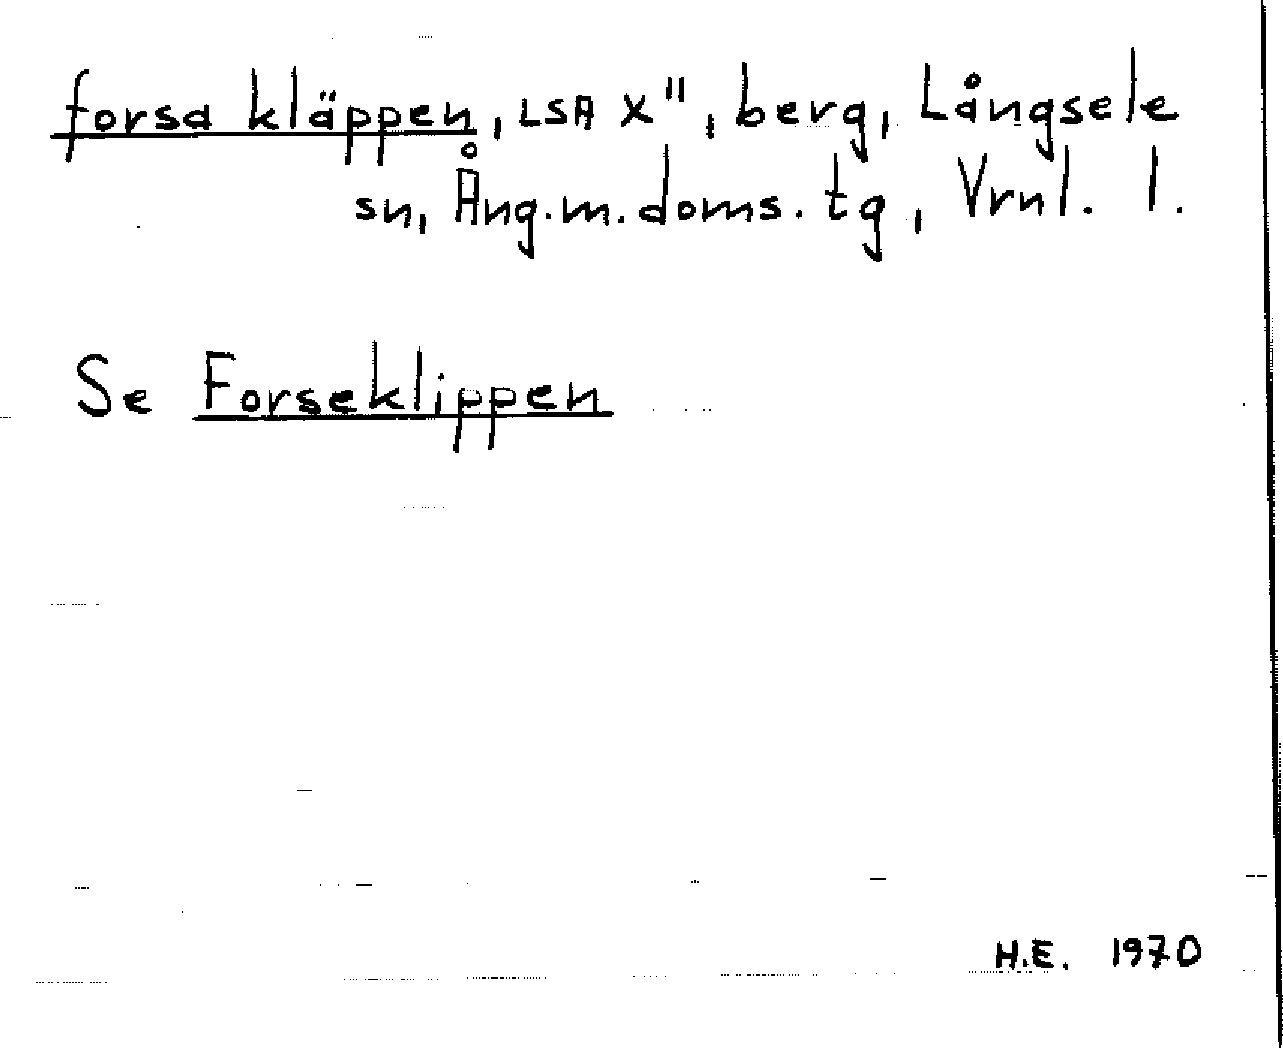 forsa kläppen, LSA X", berg, Långsele
sn, Ång.m.doms.tg, Vrnl. l.
Se Forseklippen
H.E. 1970